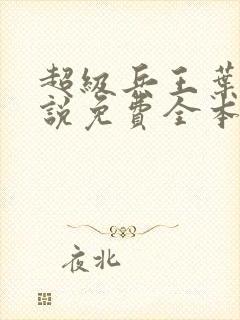 超级兵王葉
說免費全本
夜北